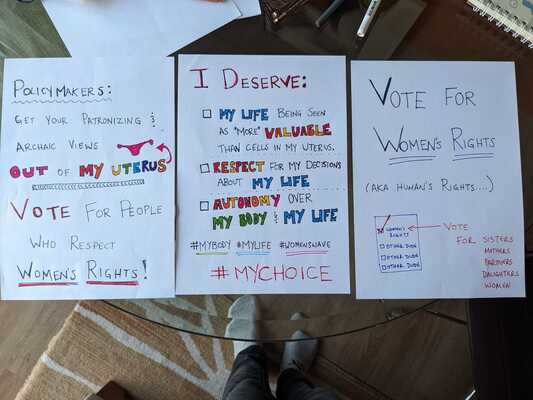 POLICYMAKERS:
GET YOUR PATRONIZING &
ARCHAIC VIEWS
OUT OF MY UTERUS
VOTE FOR PEOPLE
WHO RESPECT
WOMEN'S RIGHTS!
I DESERVE:
MY LIFE BEING SEEN
AS "MORE" VALUABLE
THAN CELLS IN MY UTERUS.
RESPECT FOR MY DECISIONS
ABOUT MY LIFE
AUTONOMY OVER
MY BODY & MY LIFE
#MYBODY #MYLIFE #WOMENSWAVE
#MYCHOICE
VOTE FOR
WOMEN'S RIGHTS
(AKA HUMAN'S RIGHTS....)
WOMEN'S
RIGHTS
OTHER DUDE
OTHER DUDE
OTHER DUDE
VOTE
FOR SISTERS
MOTHERS
PARTNERS
DAUGHTERS
WOMEN